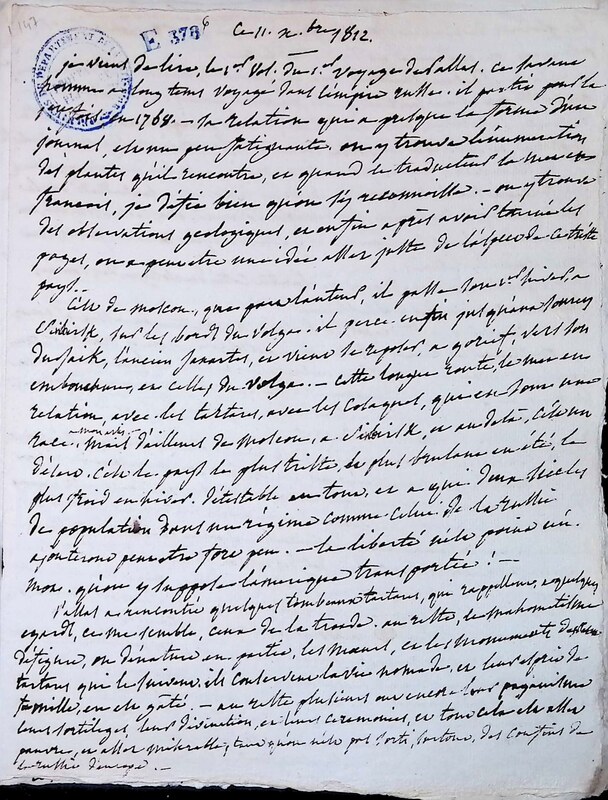 E 378 6
ce 11. xbre 1812.
je viens de lire, le 1er vol. du 1er voyage de Pallas. ce savant
homme a longtems voyagé dans l'empire russe. il partit pour la
en 1768. — sa relation qui a presque la forme d'un
journal, est un peu fatiguante. on y trouve l'énumération
des plantes qu'il rencontre, et quand le traducteur la met en
francois, je défie bien qu'on les reconnoisse. — on y trouve
des observations géologiques, et enfin après avoir tourné les
pages, on a peut etre une idée assez juste de l'aspect de ce triste
pays.
C'est de moscou, que part l'auteur, il passe son 1er hiver, a
Sibirsk, sur les bords du Volga. il perce enfin jusqu'aux sources
du jaik, l'ancien jaxartes, et vient se reposer, a gorief, vers son
embouchure, et celle, du volga. — cette longue route, le met en
relation, avec les tartares, avec les cosaques, qui en sont une
race. mais d'ailleurs de moscou, a Sibirsk, et au delà, c'est un
désert. c'est le pays le plus triste, le plus brulant en été, le
plus froid en hiver. détestable en tout, et a qui deux siècles
de population dans un régime comme celui de la russie
ajouteront peut etre fort peu. — la liberté n'est point ici.
mon. qu'on y suppose l'amérique transportée! —
Pallas a rencontré quelques tombeaux tartares, qui rappellent, a quelques
egards, ce me semble, ceux de la troade. au reste, le mahométisme
défigure, ou dénature en partie, les moeurs, et les monuments des
tartares qui le suivent. ils conservent la vie nomade, et leur esprit de
famille, en est gâté. — au reste plusieurs ont encore leur paganisme
leurs sortilèges, leur divination, et leurs ceremonies, et tout cela est assez
pauvre, et assez misérable, tant qu'on n'est pas sorti, surtout, des confins de
la russie d'europe. —